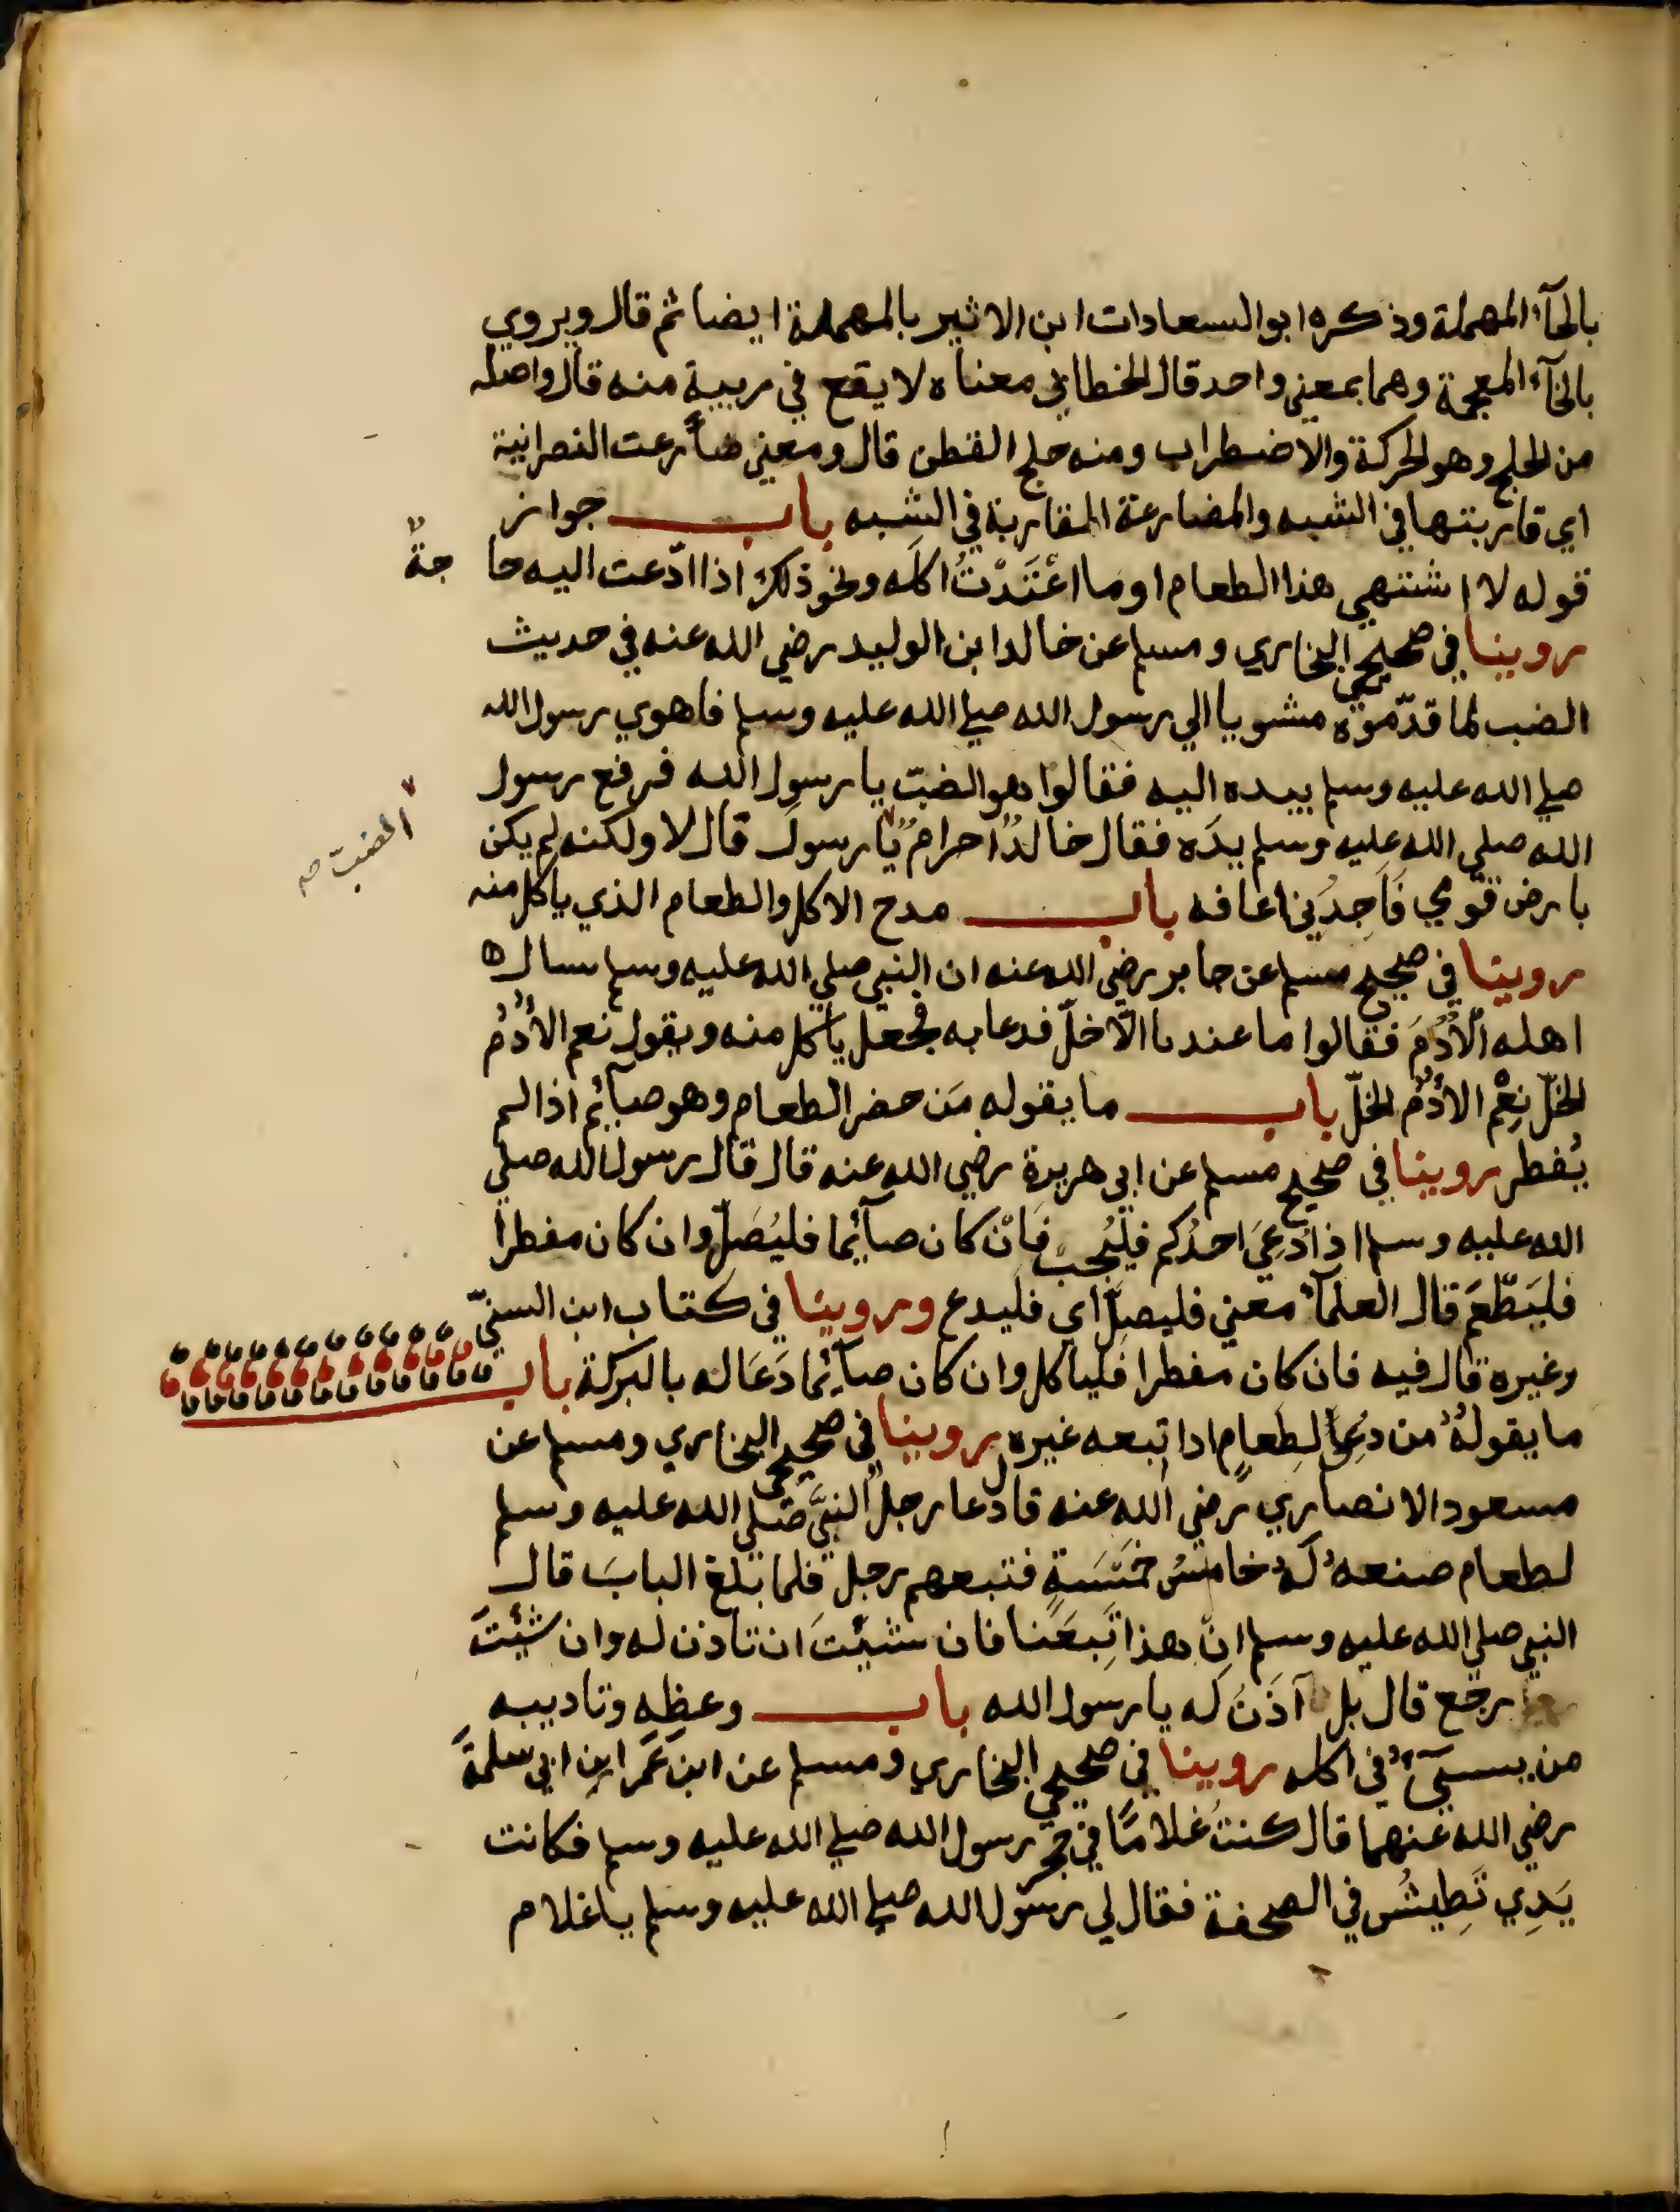 بالحآء المهملة وذكره ابوالسعادات ابن الاثير بالمهملة ايضا ثم قال ويروي
بالخآء المعجمة وهما بمعني واحد قال الخطابي معناه لا يقع في ريبية منه قال واصله
من الحلج وهو الحركة والاضطراب ومنه حلج القطن قال ومعني ضاَرعت النصرانية
اي قاربتها في الشبه والمضارعة المقاربة في الشبه باب جواز
قوله لا اشتهي هذا الطعام او ما اعْتَدْتُ اكلَه ونحو ذلك اذا ادّعت اليه حا جةٌ
روينا في صحيحي البخاري ومسلم عن خالدا بن الوليد رضي الله عنه في حديث
الضب لما قدّموه مشويا الي رسول الله صلي الله عليه وسلم فاهوي رسول الله
صلي الله عليه وسلم بيده اليه فقالوا هو الضبّ يا رسول الله فرفع رسول
الله صلي الله عليه وسلم يدَه فقال خالدٌ احرامٌ يا رسولَ قال لا ولكنه لم يكن
الضبّ صم
بارض قومي فَاَجِدُني اعافه باب مدح الاكل والطعام الذي ياكل منه
روينا في صحيح مسلم عن جابر رضي الله عنه ان النبي صلي الله عليه وسلم سال
اهله الْاُدُمَ فقالوا ما عندنا الّا خلّ فدعا به فجعل ياكل منه ويقول نعم الأُدُمُ
الخلّ نِعْم الأُدُمُ الخلّ باب ما يقوله مَن حضر الطعام وهو صآئم اذا لم
يُفطر روينا في صحيح مسلم عن ابي هريرة رضي الله عنه قال قال رسول الله صلي
الله عليه وسلم اذا دُعِيَ احدُكم فليُجب فَانْ كان صآئما فليُصَلّ وان كان مفطرا
فليَطْعَمْ قال العلمآء معني فليصلِّ اي فليدع وروينا في كتاب ابن السنيّ
وغيره قال فيه فان كان مفطرا فلياكل وان كان صآئما دَعَا له بالبركة باب
ما يقولهُ من دُعِيَ لِطعامٍ اذا تبعه غيره روينا في صحيحي البخاري ومسلم عن
مسعود الانصاري رضي الله عنه قال دعا رجلٌ النبيَّ صَلي الله عليه وسلم
لطعام صنعهُ لَهُ خامسُ خمَسَةٍ فتبعهم رجل فلما بلغ البابَ قال
النبي صلي الله عليه وسلم انّ هذا تَبِعَنا فان شئتَ ان تاذن له وان شئتَ
رجَع قال بل آذَنُ لَه يا رسول الله باب وعظه وتاديبه
من يسيٓءُ في اكله روينا في صحيحي البخاري ومسلم عن ابن عمَر ابن ابي سلمةَ
رضي الله عنهما قال كنتُ غلامًا في حجر رسول الله صلي الله عليه وسلم فكانت
يَدِي تَطِيشُ في الصحفة فقال لي رسول الله صلي الله عليه وسلم يا غلام